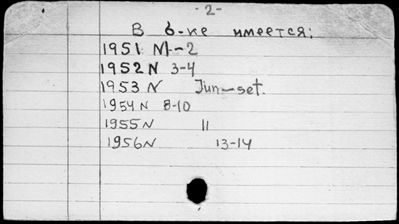 - 2 -
В б-ке имеется:
1951 N 1-2
1952 N 3-4
1953 N Jun-set.
1954 N 8-10
1955 N 11
1956 N 13-14